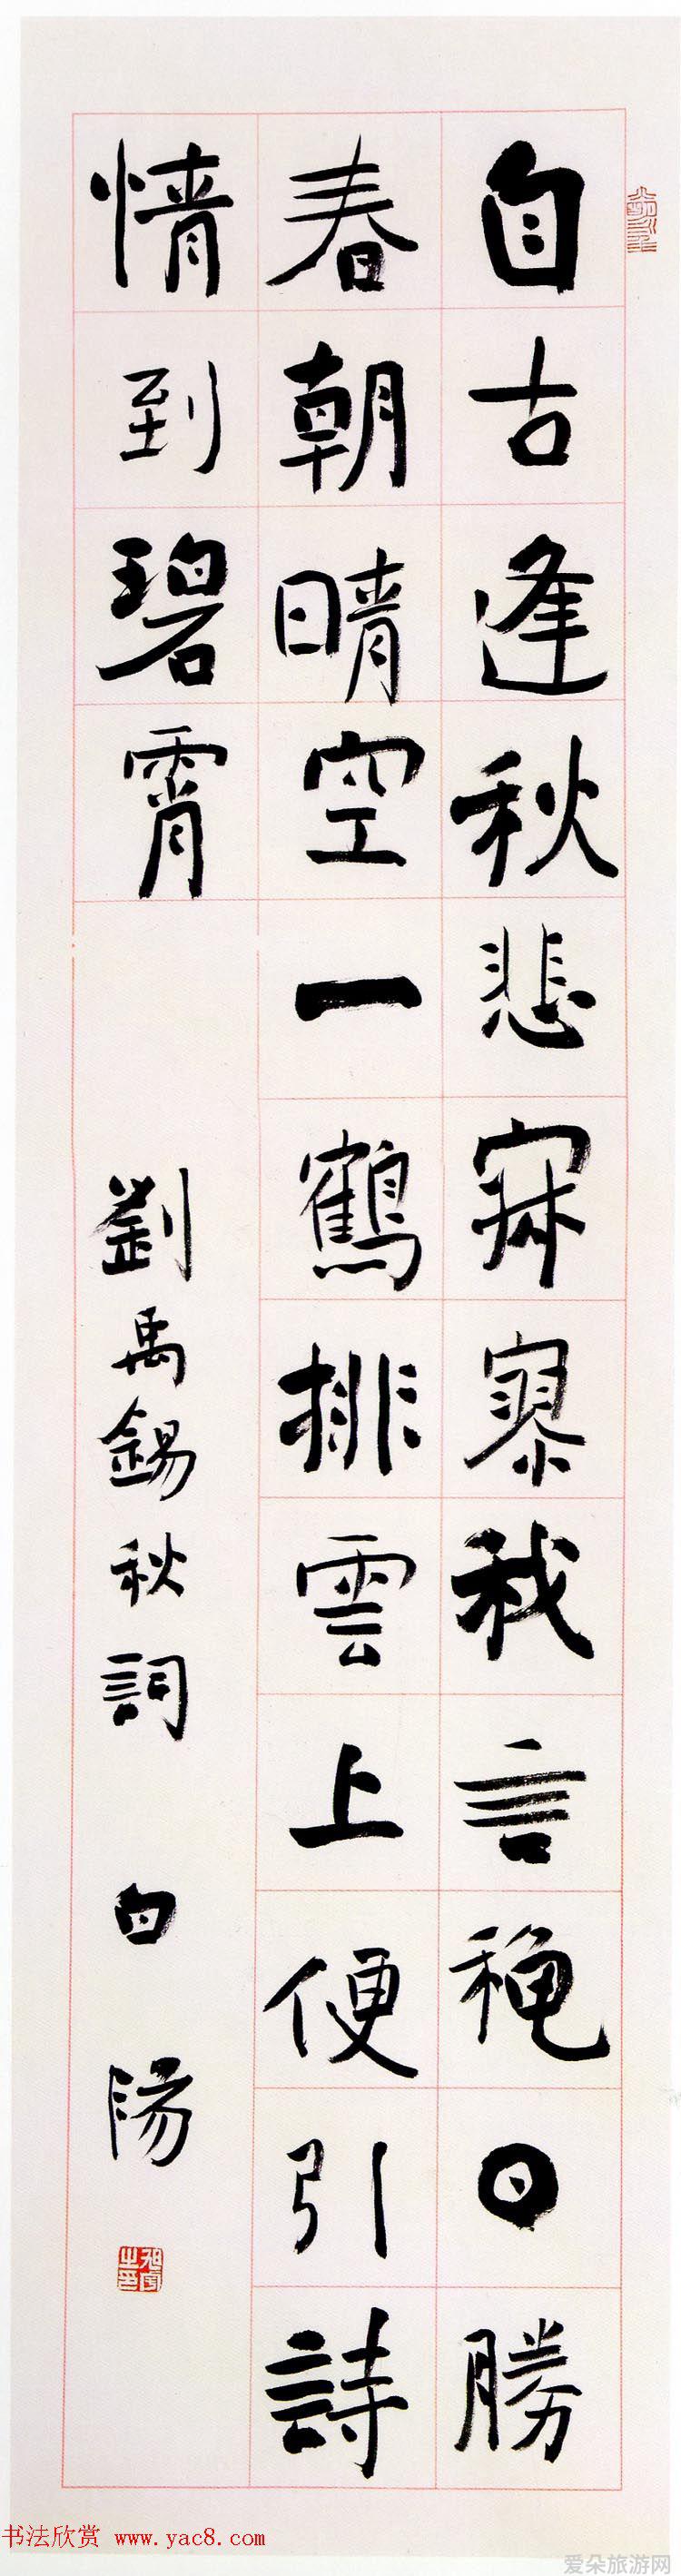 自古逢秋悲寂寥我言穐日勝
春朝晴空一鶴排雲上便引詩
情到碧霄
劉禹錫秋詞 白陽
书法欣赏 www.yac8.com
爱朵旅游网